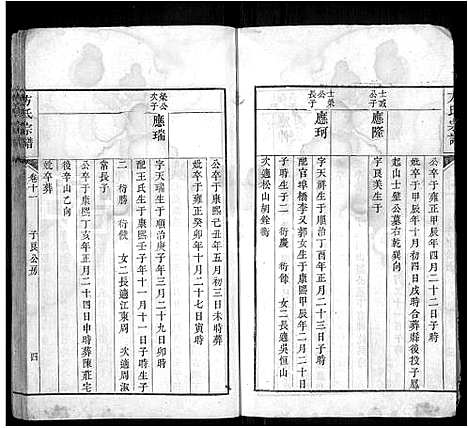 方氏宗譜
公卒于雍正甲辰年四月二十二日子時
妣卒于甲辰年十月初四日戌時合葬縣後投子鳳
起山士犖公墓右乾巽向
士彧公子
應隆
字良美生于
士榮公長子
應珂
字天祥生于順治丁酉年正月二十三日子時
配官埠橋李又郭女生于康熙甲辰年二月二十日
子時生子二 衍慶 衍餘 女二長適吳恒山
次適松山胡銓衡
公卒于康熙己丑年五月初三日未時葬
妣卒于雍正癸卯年十月二十七日寅時
榮公次子
應瑞
字天瑞生于順治庚子年三月二十九日卯時
配王氏生于康熙壬子年十一月十一日子時生子
二 衍勝 衍 女二長適江東周 次適周淑
常長子
公卒于康熙丁亥年正月二十四日申時葬陳莊宅
後辛山乙向
妣卒葬
方氏宗譜
卷十一
子良公房
四